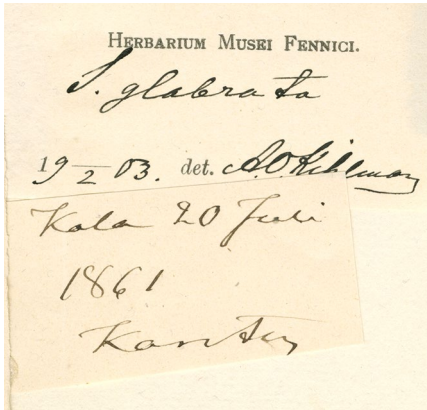 HERBARIUM MUSEI FENNICI.
S. glabrata
19 2/2 03. det. A.O. Kihlman
Kola 20 Juli
1861